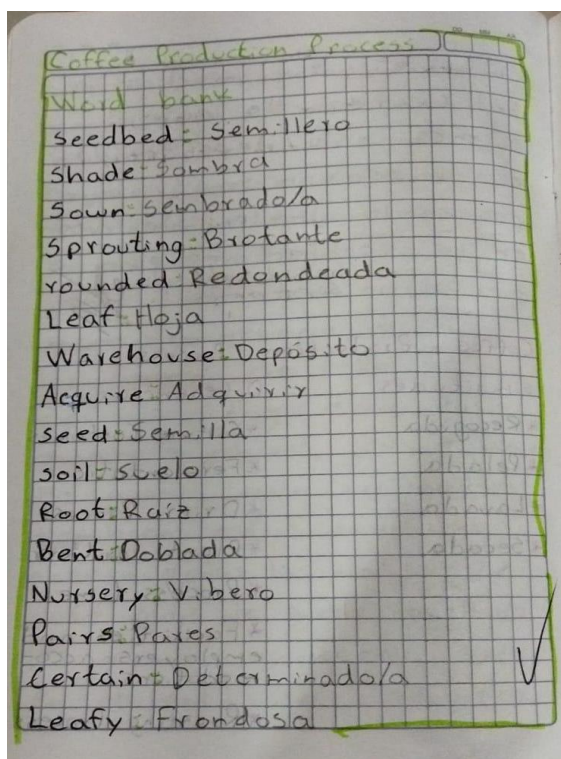 Coffee Production Process
Word bank
Seedbed: Semillero
Shade: Sombra
Sown: Sembrado/a
Sprouting: Brotante
rounded Redondeada
Leaf: Hoja
Warehouse: Depósito
Acquire: Adquirir
seed: Semilla
soil: Suelo
Root: Raiz
Bent: Doblada
Nursery: Vibero
Pairs: Pares
Certain: Determinado/a
Leafy: Frondosa